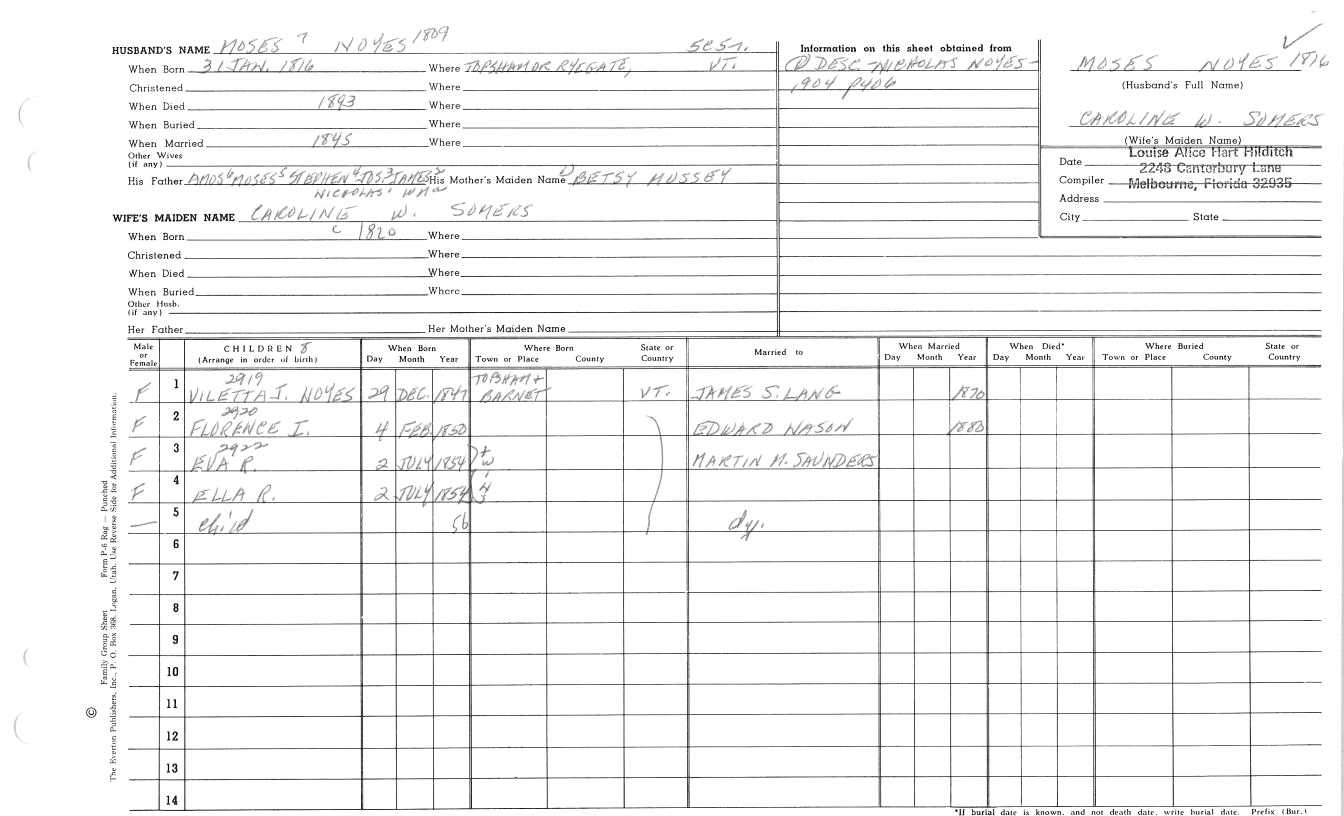 HUSBAND'S NAME MOSES 7 NOYES 1809
When Born 31 JAN. 1816 Where TOPSHAM OR RYEGATE, VT.
Christened Where
When Died 1893 Where
When Buried Where
When Married 1845 Where
Other Wives
(if any)
His Father AMOS6 MOSES5 STEPHEN4 JOS.3 JAMES2 His Mother's Maiden Name BETSY MUSSEY
NICHOLAS1 WMa
WIFE'S MAIDEN NAME CAROLINE W. SOMERS
When Born c 1820 Where
Christened Where
When Died Where
When Buried Where
Other Husb.
(if any)
Her Father Her Mother's Maiden Name
Information on this sheet obtained from
① DESC. NICHOLAS NOYES -
1904 p406
MOSES NOYES 1816
(Husband's Full Name)
CAROLINE W. SOMERS
(Wife's Maiden Name)
Date Louise Alice Hart Hilditch
2248 Canterbury Lane
Compiler Melbourne, Florida 32935
Address
City State
Male or Female CHILDREN 8 (Arrange in order of birth) When Born Day Month Year Where Born Town or Place County State or Country Married to When Married Day Month Year When Died* Day Month Year Where Buried Town or Place County State or Country
2919 TOPSHAM +
F 1 VILETTA J. NOYES 29 DEC. 1847 BARNET VT. JAMES S. LANG 1870
2920
F 2 FLORENCE I. 4 FEB 1850 EDWARD NASON 1880
2922
F 3 EVA R. 2 JULY 1854 tw MARTIN M. SAUNDERS
F 4 ELLA R. 2 JULY 1854
— 5 child 56 dy.
6
7
8
9
10
11
12
13
14
*If burial date is known, and not death date, write burial date. Prefix (Bur.)
© The Everton Publishers, Inc., P. O. Box 368, Logan, Utah. Use Reverse Side for Additional Information.
Family Group Sheet Form P-6 Rag — Punched